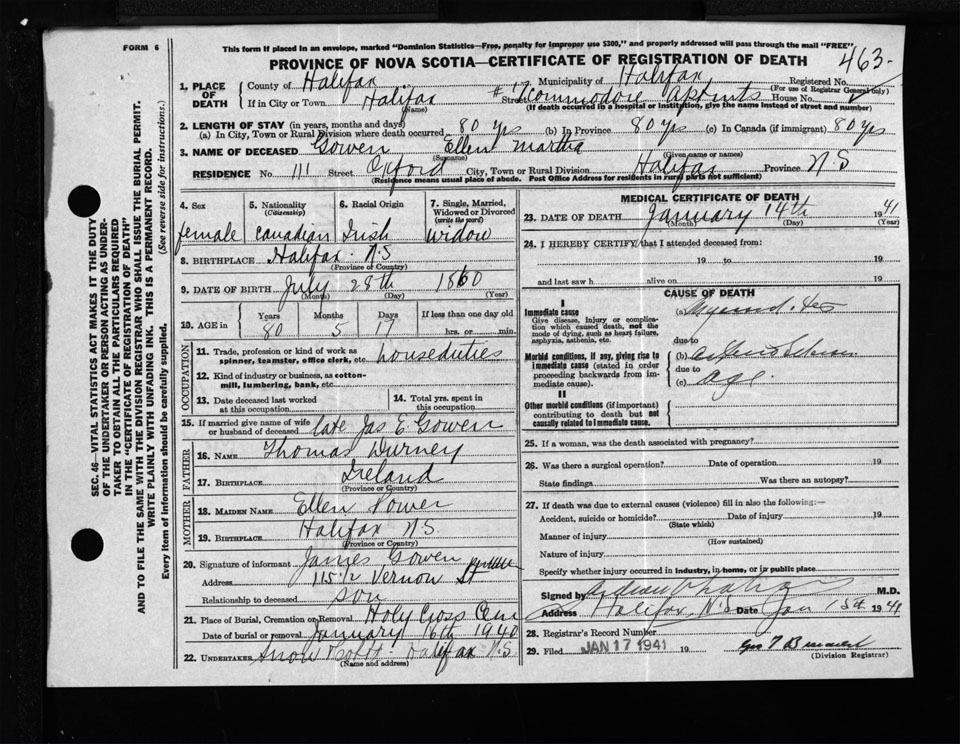 FORM 6
This form if placed in an envelope, marked "Dominion Statistics—Free, penalty for improper use $300," and properly addressed will pass through the mail "FREE"
PROVINCE OF NOVA SCOTIA—CERTIFICATE OF REGISTRATION OF DEATH
463-
1. PLACE OF DEATH
County of Halifax Municipality of Halifax Registered No.
(For use of Registrar General only)
If in City or Town Halifax Street #17 Commodore Aptmts House No.
(Name) (If death occurred in a hospital or institution, give the name instead of street and number)
2. LENGTH OF STAY (in years, months and days)
(a) In City, Town or Rural Division where death occurred 80 yrs (b) In Province 80 yrs (c) In Canada (if immigrant) 80 yrs
3. NAME OF DECEASED Gowen Ellen Martha
(Surname) (Given name or names)
RESIDENCE No. 111 Street Oxford City, Town or Rural Division Halifax Province N S
(Residence means usual place of abode. Post Office Address for residents in rural parts not sufficient)
4. Sex
female
5. Nationality
(Citizenship)
Canadian
6. Racial Origin
Irish
7. Single, Married, Widowed or Divorced
(write the word)
Widow
8. BIRTHPLACE Halifax N.S
(Province or Country)
9. DATE OF BIRTH July 28th 1860
(Month) (Day) (Year)
10. AGE in
Years Months Days If less than one day old
80 5 17 hrs. or min.
OCCUPATION
11. Trade, profession or kind of work as spinner, teamster, office clerk, etc. houseduties
12. Kind of industry or business, as cotton-mill, lumbering, bank, etc.
13. Date deceased last worked at this occupation
14. Total yrs. spent in this occupation
15. If married give name of wife or husband of deceased late Jas E. Gowen
FATHER
16. NAME Thomas Durney
17. BIRTHPLACE Ireland
(Province or Country)
MOTHER
18. MAIDEN NAME Ellen Power
19. BIRTHPLACE Halifax N.S.
(Province or Country)
20. Signature of informant James Gowen
Address 115 1/2 Vernon St
Relationship to deceased son
21. Place of Burial, Cremation or Removal Holy Cross Cem
Date of burial or removal January 16th 1940
22. UNDERTAKER Snow Halifax N.S
(Name and address)
MEDICAL CERTIFICATE OF DEATH
23. DATE OF DEATH January 14th 1941
(Month) (Day) (Year)
24. I HEREBY CERTIFY that I attended deceased from:
19 to 19
and last saw h alive on 19
CAUSE OF DEATH
I
Immediate cause
Give disease, injury or complication which caused death, not the mode of dying, such as heart failure, asphyxia, asthenia, etc.
(a)
due to
Morbid conditions, if any, giving rise to immediate cause (stated in order proceeding backwards from immediate cause).
(b)
due to
(c) age.
II
Other morbid conditions (if important) contributing to death but not causally related to immediate cause.
25. If a woman, was the death associated with pregnancy?
26. Was there a surgical operation? Date of operation 19
State findings Was there an autopsy?
27. If death was due to external causes (violence) fill in also the following:—
Accident, suicide or homicide? Date of injury 19
(State which)
Manner of injury
(How sustained)
Nature of injury
Specify whether injury occurred in industry, in home, or in public place
Signed by Andrew M.D.
Address Halifax N.S Date Jan 15th 1941
28. Registrar's Record Number
29. Filed JAN 17 1941 19
(Division Registrar)
SEC. 46—VITAL STATISTICS ACT MAKES IT THE DUTY
OF THE UNDERTAKER OR PERSON ACTING AS UNDER-
TAKER TO OBTAIN ALL THE PARTICULARS REQUIRED
IN THE "CERTIFICATE OF REGISTRATION OF DEATH"
AND TO FILE THE SAME WITH THE DIVISION REGISTRAR WHO SHALL ISSUE THE BURIAL PERMIT.
WRITE PLAINLY WITH UNFADING INK. THIS IS A PERMANENT RECORD.
Every item of information should be carefully supplied. (See reverse side for instructions.)